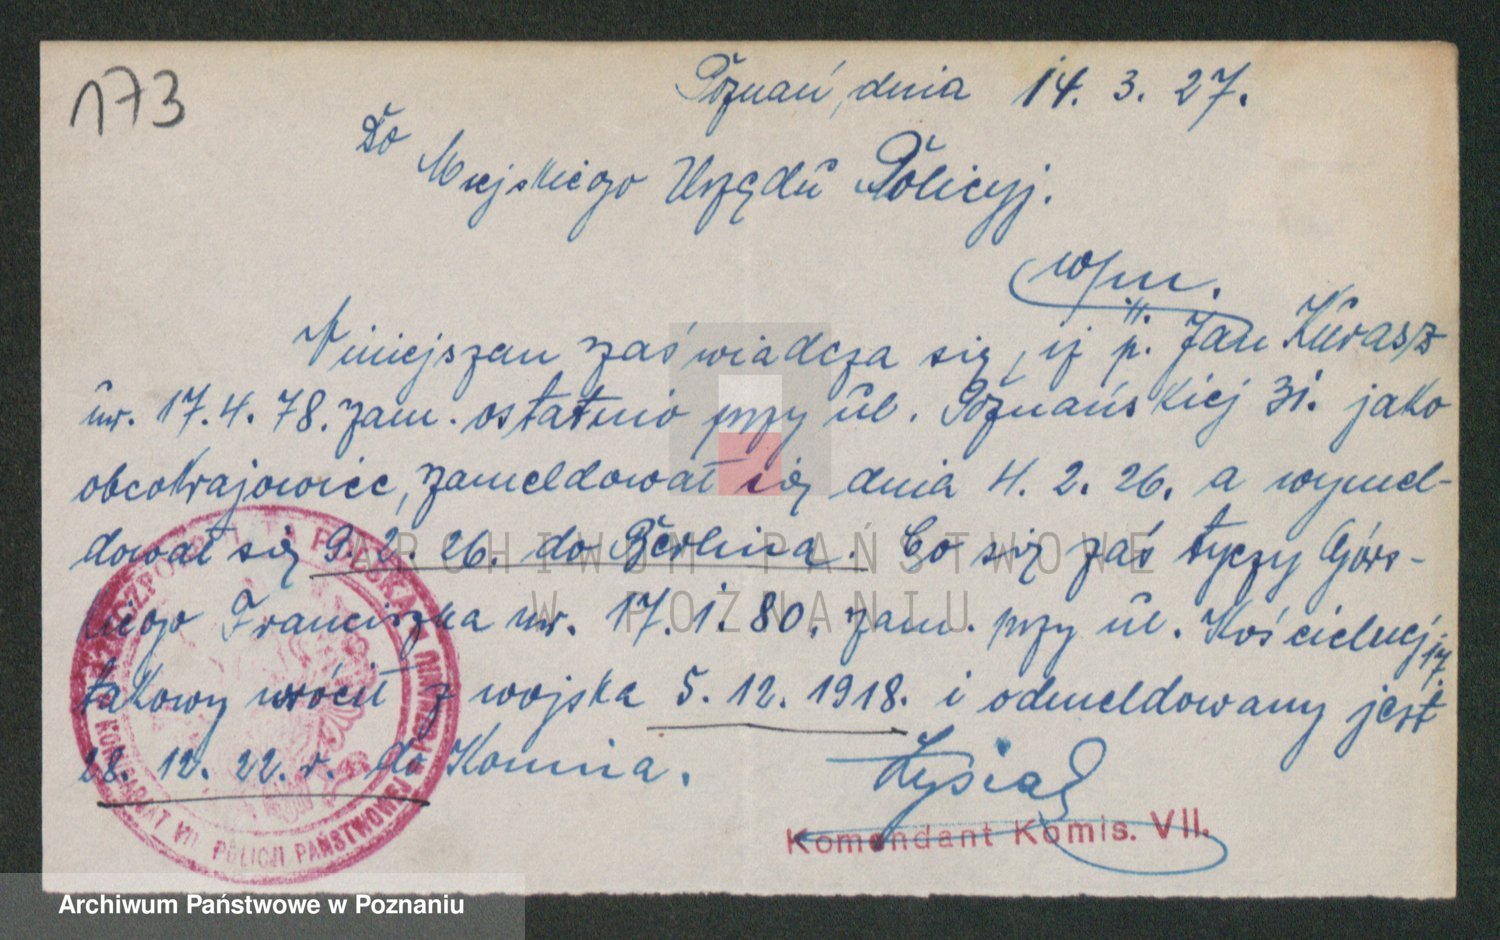 173
Poznań, dnia 14. 3. 27.
Do
Miejskiego Urzędu Policyj.
w/m.
Niniejszem zaświadcza się, iż p. Jan Kurasz
ur. 17.4.78. zam. ostatnio przy ul. Poznańskiej 31. jako
obcokrajowiec, zameldował się dnia 4. 2. 26. a wymel-
dował się 9. 2. 26. do Berlina. Co się zaś tyczy Górs-
kiego Franciszka ur. 17.1.80. zam. przy ul. Kościelnej 17.
takowy wrócił z wojska 5. 12. 1918. i odmeldowany jest
28. 12. 22. r. do Konina.
Komendant Komis. VII.
RZECZPOSPOLITA POLSKA
KOMISARJAT VII POLICJI PAŃSTWOWEJ
ARCHIWUM PAŃSTWOWE
W POZNANIU
Archiwum Państwowe w Poznaniu